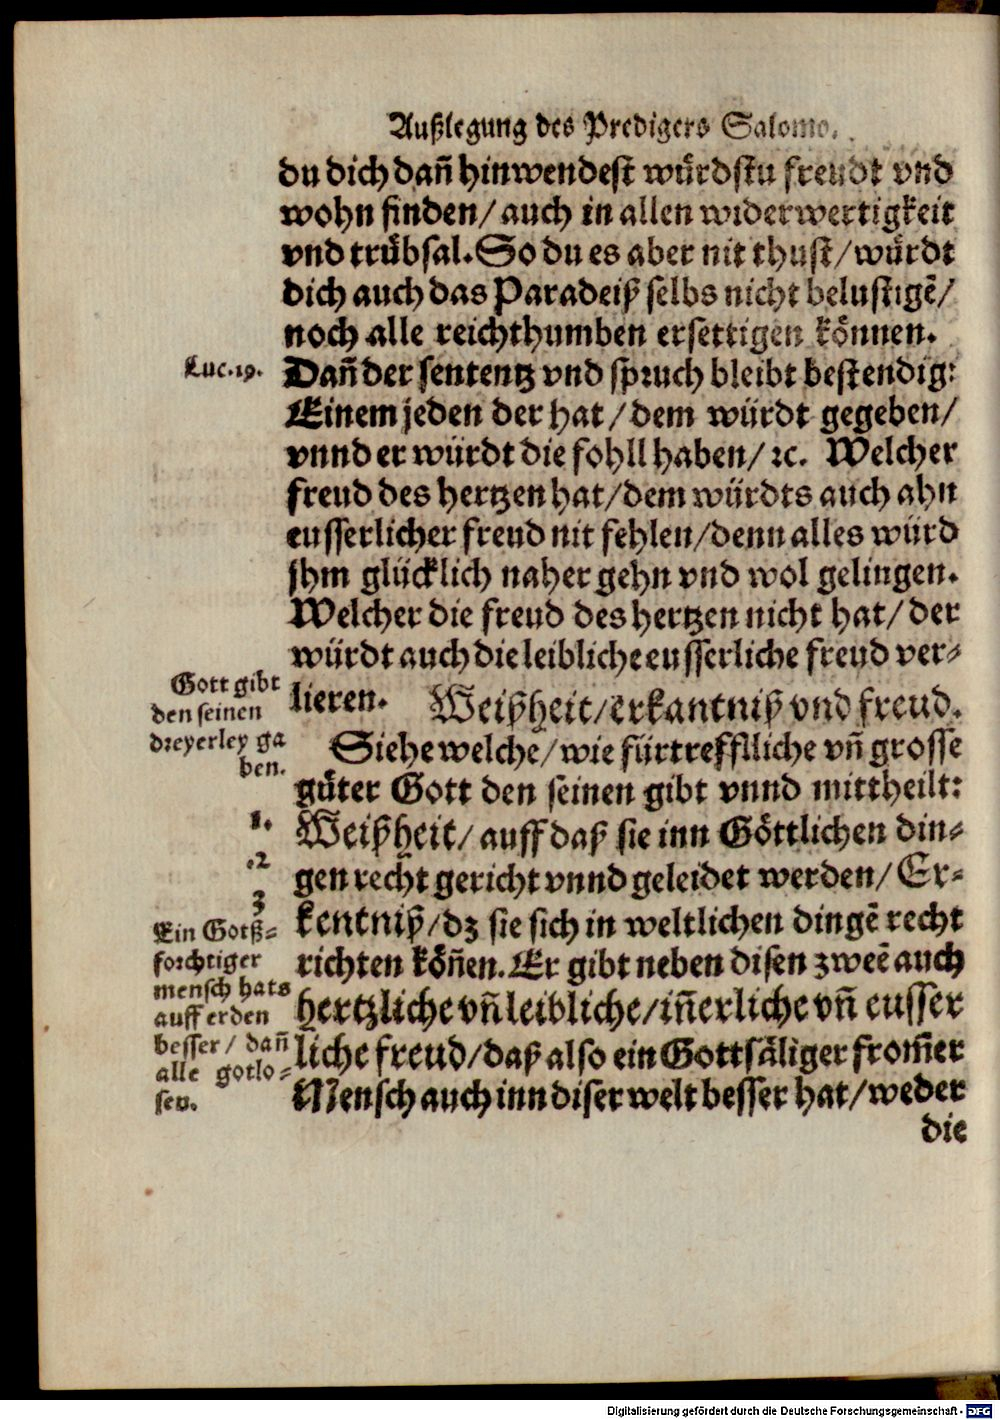 Außlegung des Predigers Salomo.
du dich dañ hinwendest würdstu freudt vnd
wohn finden/ auch in allen widerwertigkeit
vnd trübsal. So du es aber nit thust/ würdt
dich auch das Paradeiß selbs nicht belustigẽ/
noch alle reichthumben ersettigen können.
Luc. 19.
Dañ der sententz vnd spruch bleibt bestendig:
Einem jeden der hat/ dem würdt gegeben/
vnnd er würdt die fohll haben/ ꝛc. Welcher
freud des hertzen hat/ dem würdts auch ahn
eusserlicher freud nit fehlen/ denn alles würd
jhm glücklich naher gehn vnd wol gelingen.
Welcher die freud des hertzen nicht hat/ der
würdt auch die leibliche eusserliche freud ver-
lieren. Weißheit/ erkantniß vnd freud.
Gott gibt
den seinen
dreyerley ga
ben.
Siehe welche/ wie fürtreffliche vñ grosse
güter Gott den seinen gibt vnnd mittheilt:
1.
Weißheit/ auff daß sie inn Göttlichen din-
.2
gen recht gericht vnnd geleidet werden/ Er-
3
kentniß/ dz sie sich in weltlichen dingẽ recht
richten köñen. Er gibt neben disen zweẽ auch
hertzliche vñ leibliche/ iñerliche vñ eusser
liche freud/ daß also ein Gottsäliger from̃er
Mensch auch inn diser welt besser hat/ weder
Ein Gotß-
forchtiger
mensch hats
auff erden
besser/ dañ
alle gotlo-
sen.
die
Digitalisierung gefördert durch die Deutsche Forschungsgemeinschaft - DFG